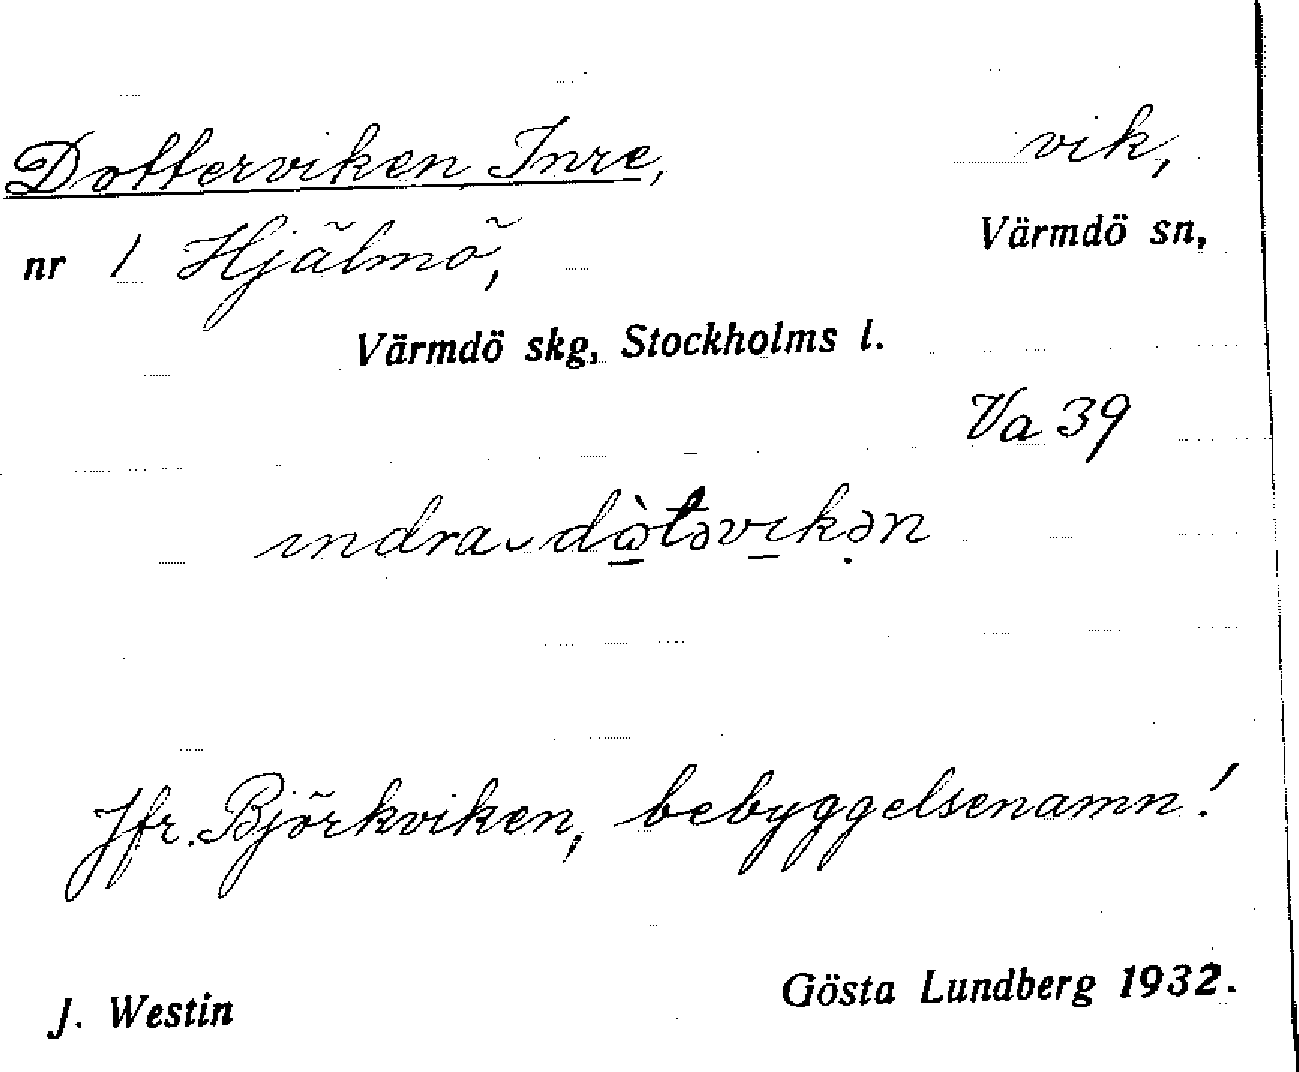 Dotterviken, Inre, vik,
nr 1 Hjälmö, Värmdö sn,
Värmdö skg, Stockholms l.
Va 39
ındra-dɷ̀təvıkən
Jfr. Björkviken, bebyggelsenamn!
J. Westin Gösta Lundberg 1932.